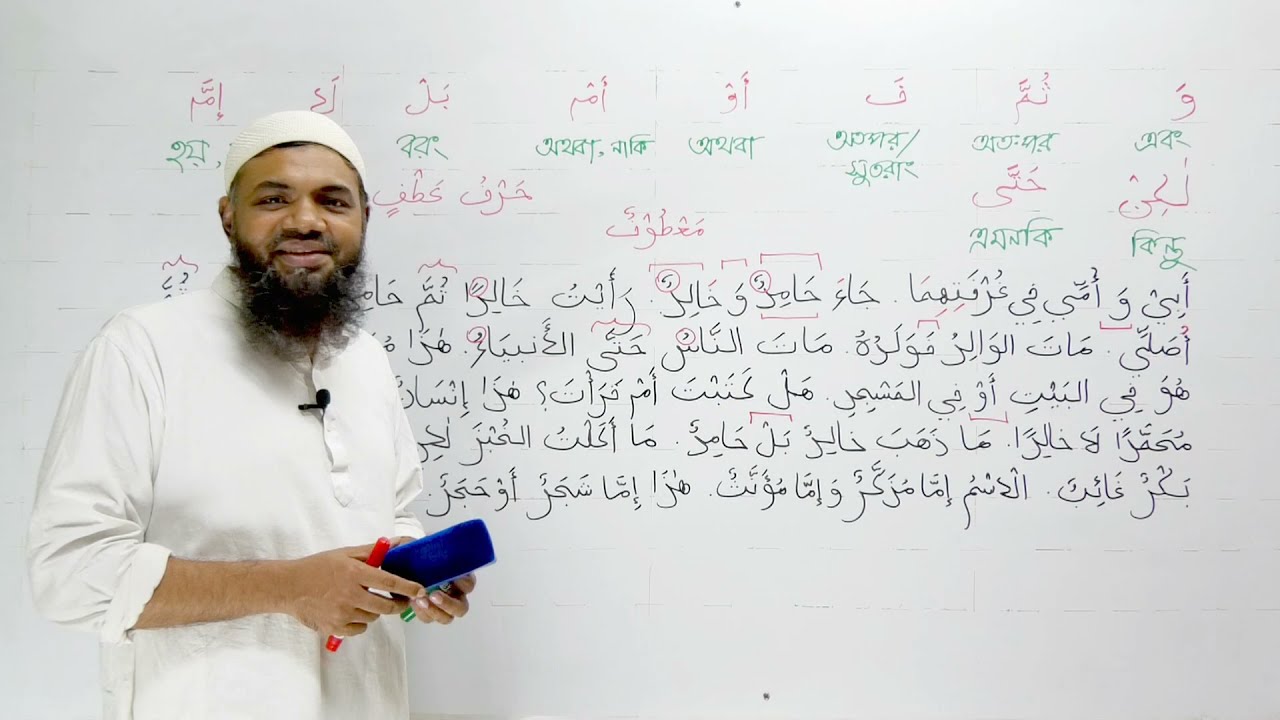 وَ ثُمَّ فَ أَوْ أَمْ بَلْ لَا إِمَّ
এবং অতঃপর অতপর/সুতরাং অথবা অথবা, নাকি বরং হয়,
لٰكِنْ حَتَّى حَرْفُ عَطْفٍ
কিন্তু এমনকি مَعْطُوْفٌ
أَبِيْ وَ أُمِّي فِي غُرْفَتِهِمَا. جَاءَ حَامِدٌ وَ خَالِدٌ. رَأَيْتُ خَالِدًا ثُمَّ
أُصَلِّي. مَاتَ الوَالِدُ فَوَلَدُهُ. مَاتَ النَّاسُ حَتَّى الأَنبِيَاءُ. هٰذَا
هُوَ فِي البَيْتِ أَوْ فِي المَسْجِدِ. هَلْ كَتَبْتَ أَمْ قَرَأْتَ؟ هٰذَا إِنْسَانٌ
لَا خَالِدًا. مَا ذَهَبَ خَالِدٌ بَلْ حَامِدٌ. مَا أَكَلْتُ الخُبْزَ
بَكْرٌ غَائِبٌ. الْاسْمُ إِمَّا مُذَكَّرٌ وَإِمَّا مُؤَنَّثٌ. هٰذَا إِمَّا شَجَرٌ أَوْ حَجَرٌ.